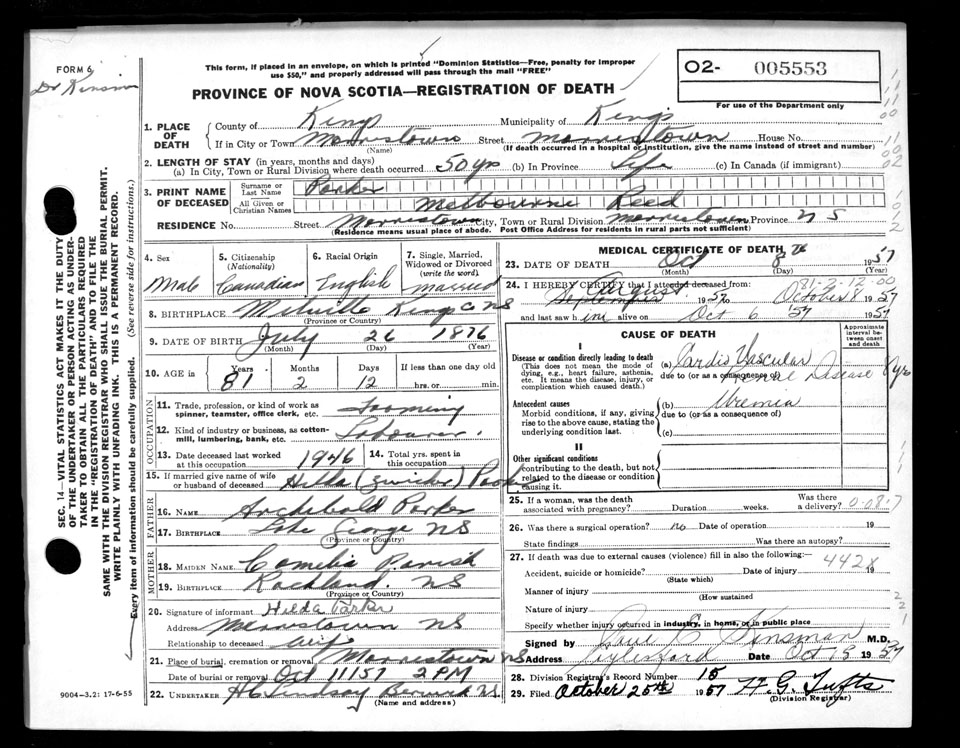 FORM 6
Dr Kinsman
This form, if placed in an envelope, on which is printed "Dominion Statistics—Free, penalty for improper
use $50," and properly addressed will pass through the mail "FREE"
PROVINCE OF NOVA SCOTIA—REGISTRATION OF DEATH
O2- 005553
For use of the Department only
SEC. 14—VITAL STATISTICS ACT MAKES IT THE DUTY
OF THE UNDERTAKER OR PERSON ACTING AS UNDER-
TAKER TO OBTAIN ALL THE PARTICULARS REQUIRED
IN THE "REGISTRATION OF DEATH" AND TO FILE THE
SAME WITH THE DIVISION REGISTRAR WHO SHALL ISSUE THE BURIAL PERMIT.
WRITE PLAINLY WITH UNFADING INK. THIS IS A PERMANENT RECORD.
Every item of information should be carefully supplied. (See reverse side for instructions.)
1. PLACE OF DEATH
County of Kings Municipality of Kings
If in City or Town Morristown Street Morristown House No.
(Name) (If death occurred in a hospital or institution, give the name instead of street and number)
2. LENGTH OF STAY (in years, months and days)
(a) In City, Town or Rural Division where death occurred 50 yrs (b) In Province Life (c) In Canada (if immigrant)
3. PRINT NAME OF DECEASED
Surname or Last Name Parker
All Given or Christian Names Melbourne Reed
RESIDENCE No. Street Morristown City, Town or Rural Division Morristown Province N S
(Residence means usual place of abode. Post Office Address for residents in rural parts not sufficient)
4. Sex Male
5. Citizenship (Nationality) Canadian
6. Racial Origin English
7. Single, Married, Widowed or Divorced (write the word) married
8. BIRTHPLACE Melville Kings Co NS
(Province or Country)
9. DATE OF BIRTH July 26 1876
(Month) (Day) (Year)
10. AGE in Years 81 Months 2 Days 12 If less than one day old
hrs. or min.
OCCUPATION
11. Trade, profession, or kind of work as
spinner, teamster, office clerk, etc. Farming
12. Kind of industry or business, as cotton-
mill, lumbering, bank, etc. Labourer.
13. Date deceased last worked
at this occupation 1946
14. Total yrs. spent in
this occupation
15. If married give name of wife
or husband of deceased Hilda (Zwicker) Parker
FATHER
16. NAME Archibald Parker
17. BIRTHPLACE Lake George NS
(Province or Country)
MOTHER
18. MAIDEN NAME Parish
19. BIRTHPLACE Rockland NS
(Province or Country)
20. Signature of informant Hilda Parker
Address Morristown NS
Relationship to deceased wife
21. Place of burial, cremation or removal Morristown NS
Date of burial or removal Oct 11 1957 2 PM
22. UNDERTAKER Lindsay Berwick
(Name and address)
9004-3.2: 17-6-55
MEDICAL CERTIFICATE OF DEATH
23. DATE OF DEATH Oct 8th 1957
(Month) (Day) (Year)
24. I HEREBY CERTIFY that I attended deceased from:
September August 1957 to October 8 1957
81-2-12-00
and last saw him alive on Oct 6 '57 1957
CAUSE OF DEATH
Approximate interval between onset and death
I
Disease or condition directly leading to death
(This does not mean the mode of dying, e.g., heart failure, asthenia, etc. It means the disease, injury, or complication which caused death.
(a) Cardio Vascular
due to (or as a consequence of) Renal Disease
Antecedent causes
Morbid conditions, if any, giving rise to the above cause, stating the underlying condition last.
(b) Uremia
due to (or as a consequence of)
(c)
II
Other significant conditions
contributing to the death, but not related to the disease or condition causing it.
25. If a woman, was the death
associated with pregnancy? Duration weeks. Was there a delivery?
26. Was there a surgical operation? no Date of operation 19
State findings Was there an autopsy?
27. If death was due to external causes (violence) fill in also the following:—
442X
Accident, suicide or homicide? Date of injury 19
(State which)
Manner of injury
(How sustained
Nature of injury
Specify whether injury occurred in industry, in home, or in public place
Signed by Kinsman M.D.
Address Aylesford Date Oct 19 1957
28. Division Registrar's Record Number 15
29. Filed October 25th 1957 G. Tufts
(Division Registrar)